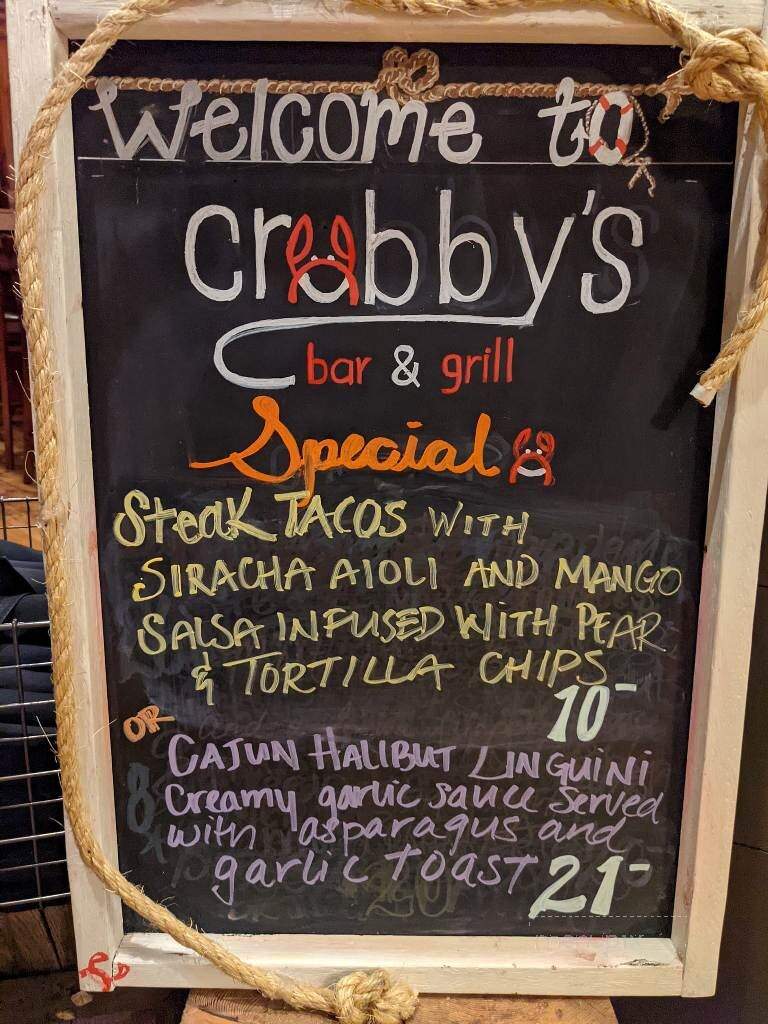 Welcome to
crabby's
bar & grill
Special
Steak TACOS WITH
SIRACHA AIOLI AND MANGO
SALSA INFUSED WITH PEAR
& TORTILLA CHIPS
10-
OR
CAJUN HALIBUT LINGUINI
Creamy garlic sauce served
with asparagus and
garlic toast
21-